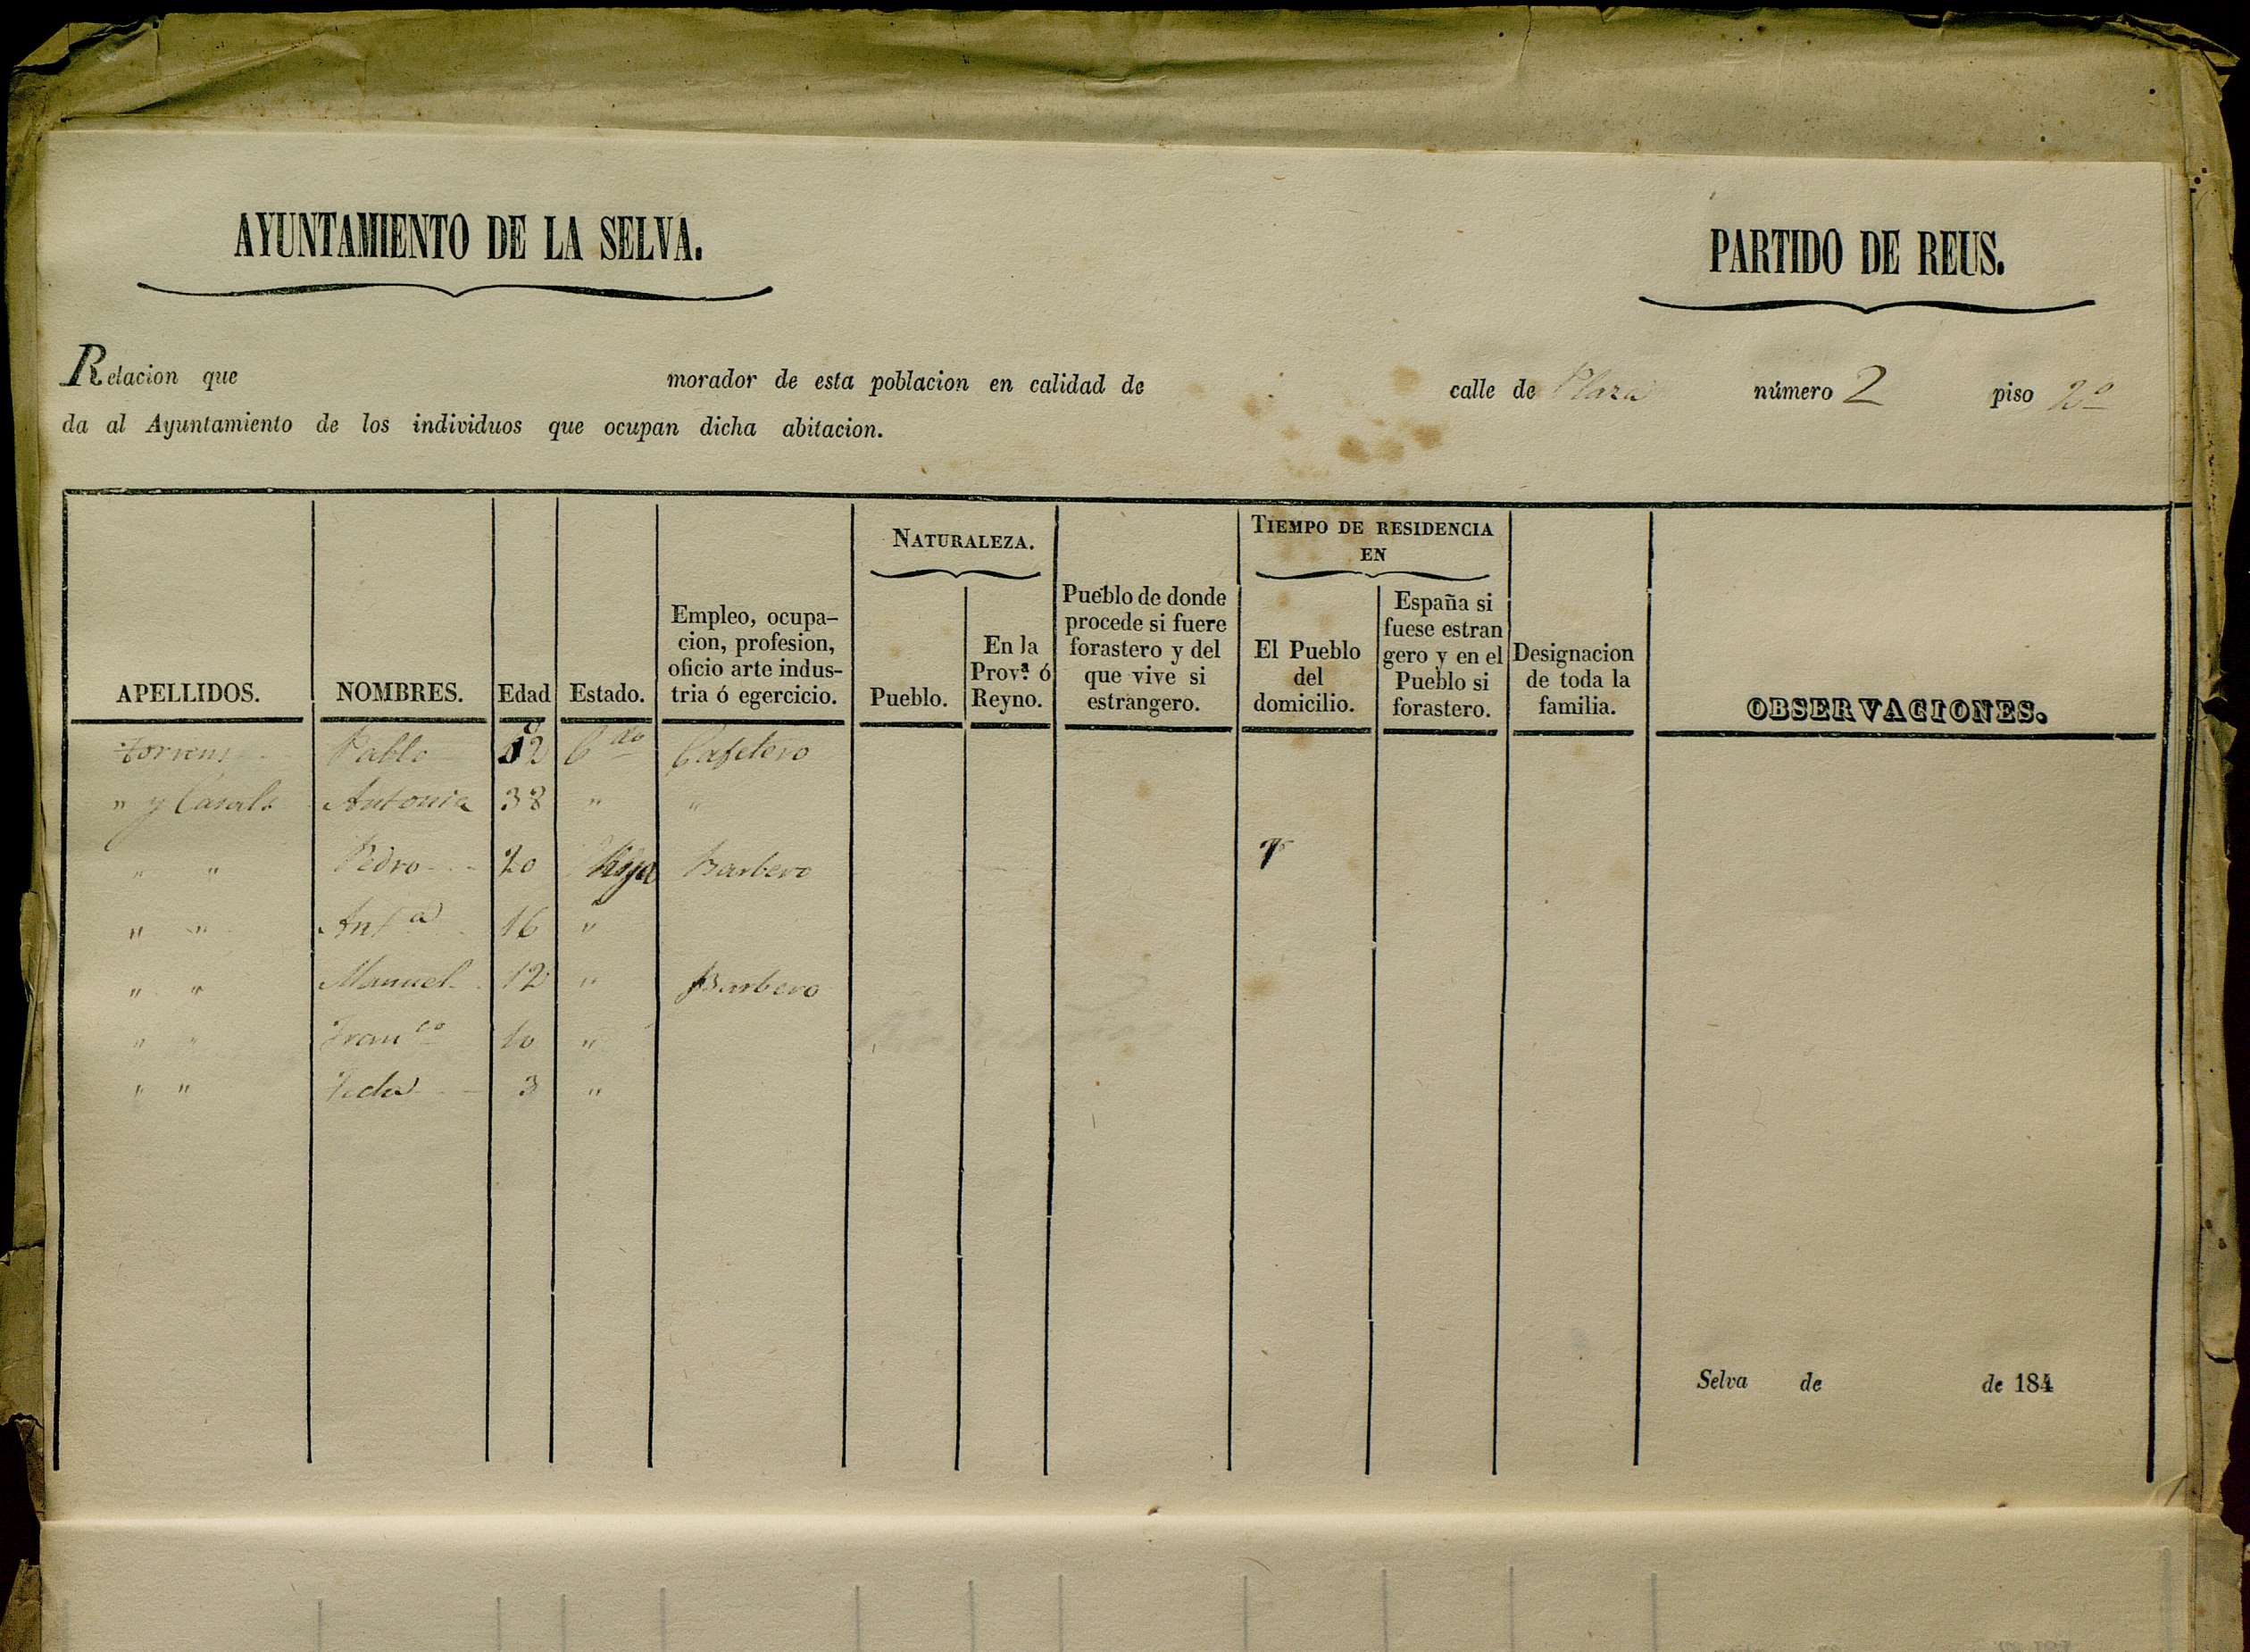 AYUNTAMIENTO DE LA SELVA.
PARTIDO DE REUS.
Relacion que morador de esta poblacion en calidad de calle de Plaza número 2 piso 2º
da al Ayuntamiento de los individuos que ocupan dicha abitacion.
APELLIDOS.
NOMBRES.
Edad
Estado.
Empleo, ocupa-
cion, profesion,
oficio arte indus-
tria ó egercicio.
NATURALEZA.
Pueblo.
En la
Provª ó
Reyno.
Pueblo de donde
procede si fuere
forastero y del
que vive si
estrangero.
TIEMPO DE RESIDENCIA
EN
El Pueblo
del
domicilio.
España si
fuese estran
gero y en el
Pueblo si
forastero.
Designacion
de toda la
familia.
OBSERVACIONES.
Torrens Pablo Cdo Cafetero
" y Casals Antonia 38 " "
" " Pedro 20 Barbero
" " Antª 16 "
" " Manuel 12 " Barbero
" " Franco 10 "
" " Tecla 3 "
Selva de de 184